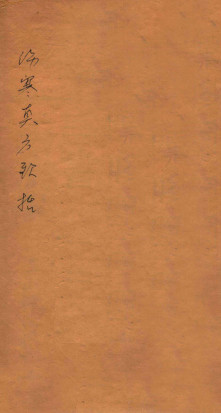 伤寒真方歌括